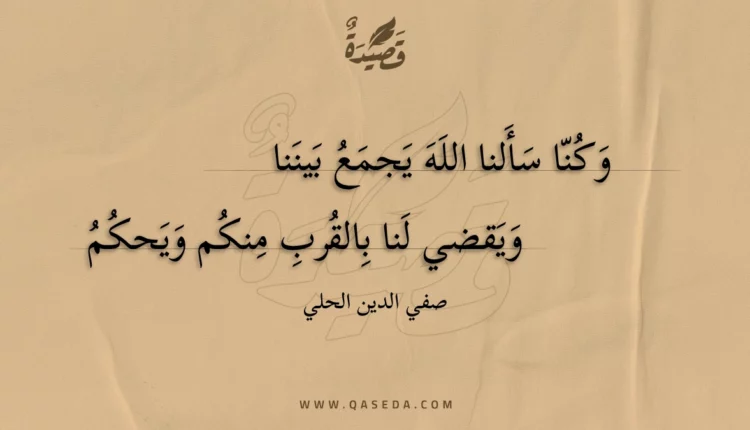 قَصِيدَةٌ
وَكُنّا سَأَلنا اللَهَ يَجمَعُ بَينَنا
وَيَقضي لَنا بِالقُربِ مِنكُم وَيَحكُمُ
صفي الدين الحلي
WWW.QASEDA.COM